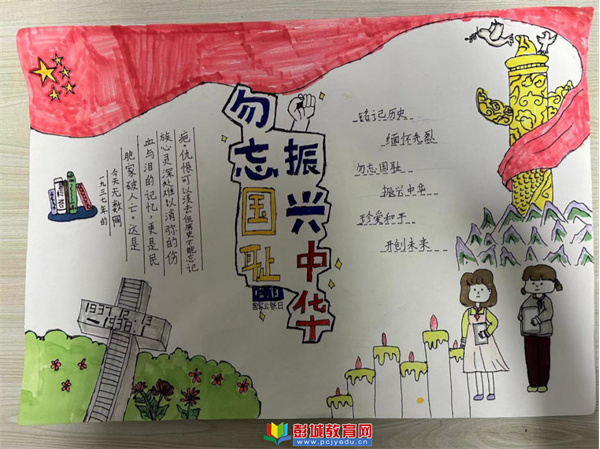 一九三七年的
今天无数同
胞家破人亡。这是
血与泪的记忆,更是民
族心灵深处难以消弥的伤
疤,仇恨可以淡去但历史不能忘记
勿忘国耻
振兴中华
国家公祭日
铭记历史
缅怀先烈
勿忘国耻
振兴中华
珍爱和平
开创未来
1937.12.13
—1938.1
彭城教育网
www.pcjyedu.cn